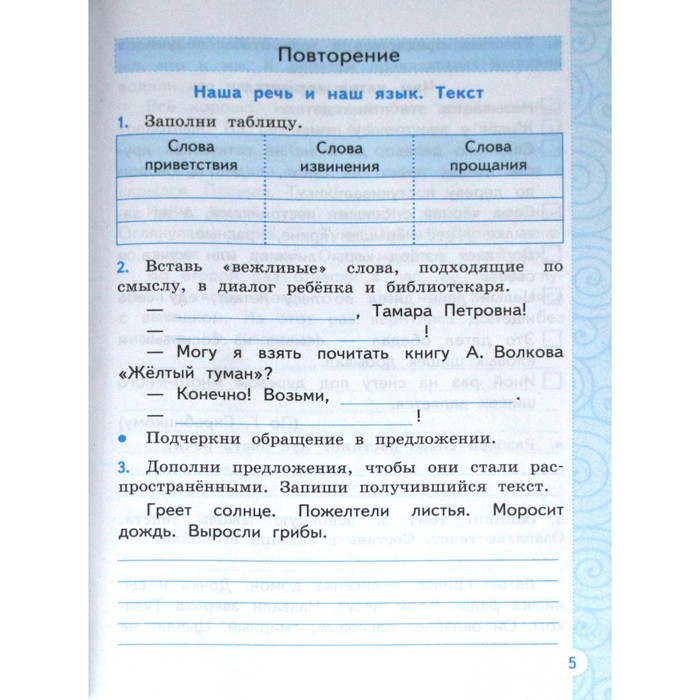 Повторение
Наша речь и наш язык. Текст
1. Заполни таблицу.
Слова приветствия
Слова извинения
Слова прощания
2. Вставь «вежливые» слова, подходящие по
смыслу, в диалог ребёнка и библиотекаря.
— , Тамара Петровна!
— !
— Могу я взять почитать книгу А. Волкова
«Жёлтый туман»?
— Конечно! Возьми, .
— !
• Подчеркни обращение в предложении.
3. Дополни предложения, чтобы они стали рас-
пространёнными. Запиши получившийся текст.
Греет солнце. Пожелтели листья. Моросит
дождь. Выросли грибы.
5